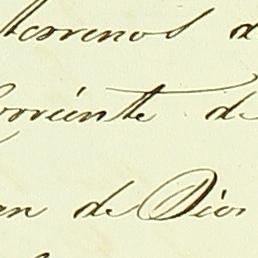 terrenos d
corriente de
an de Dios